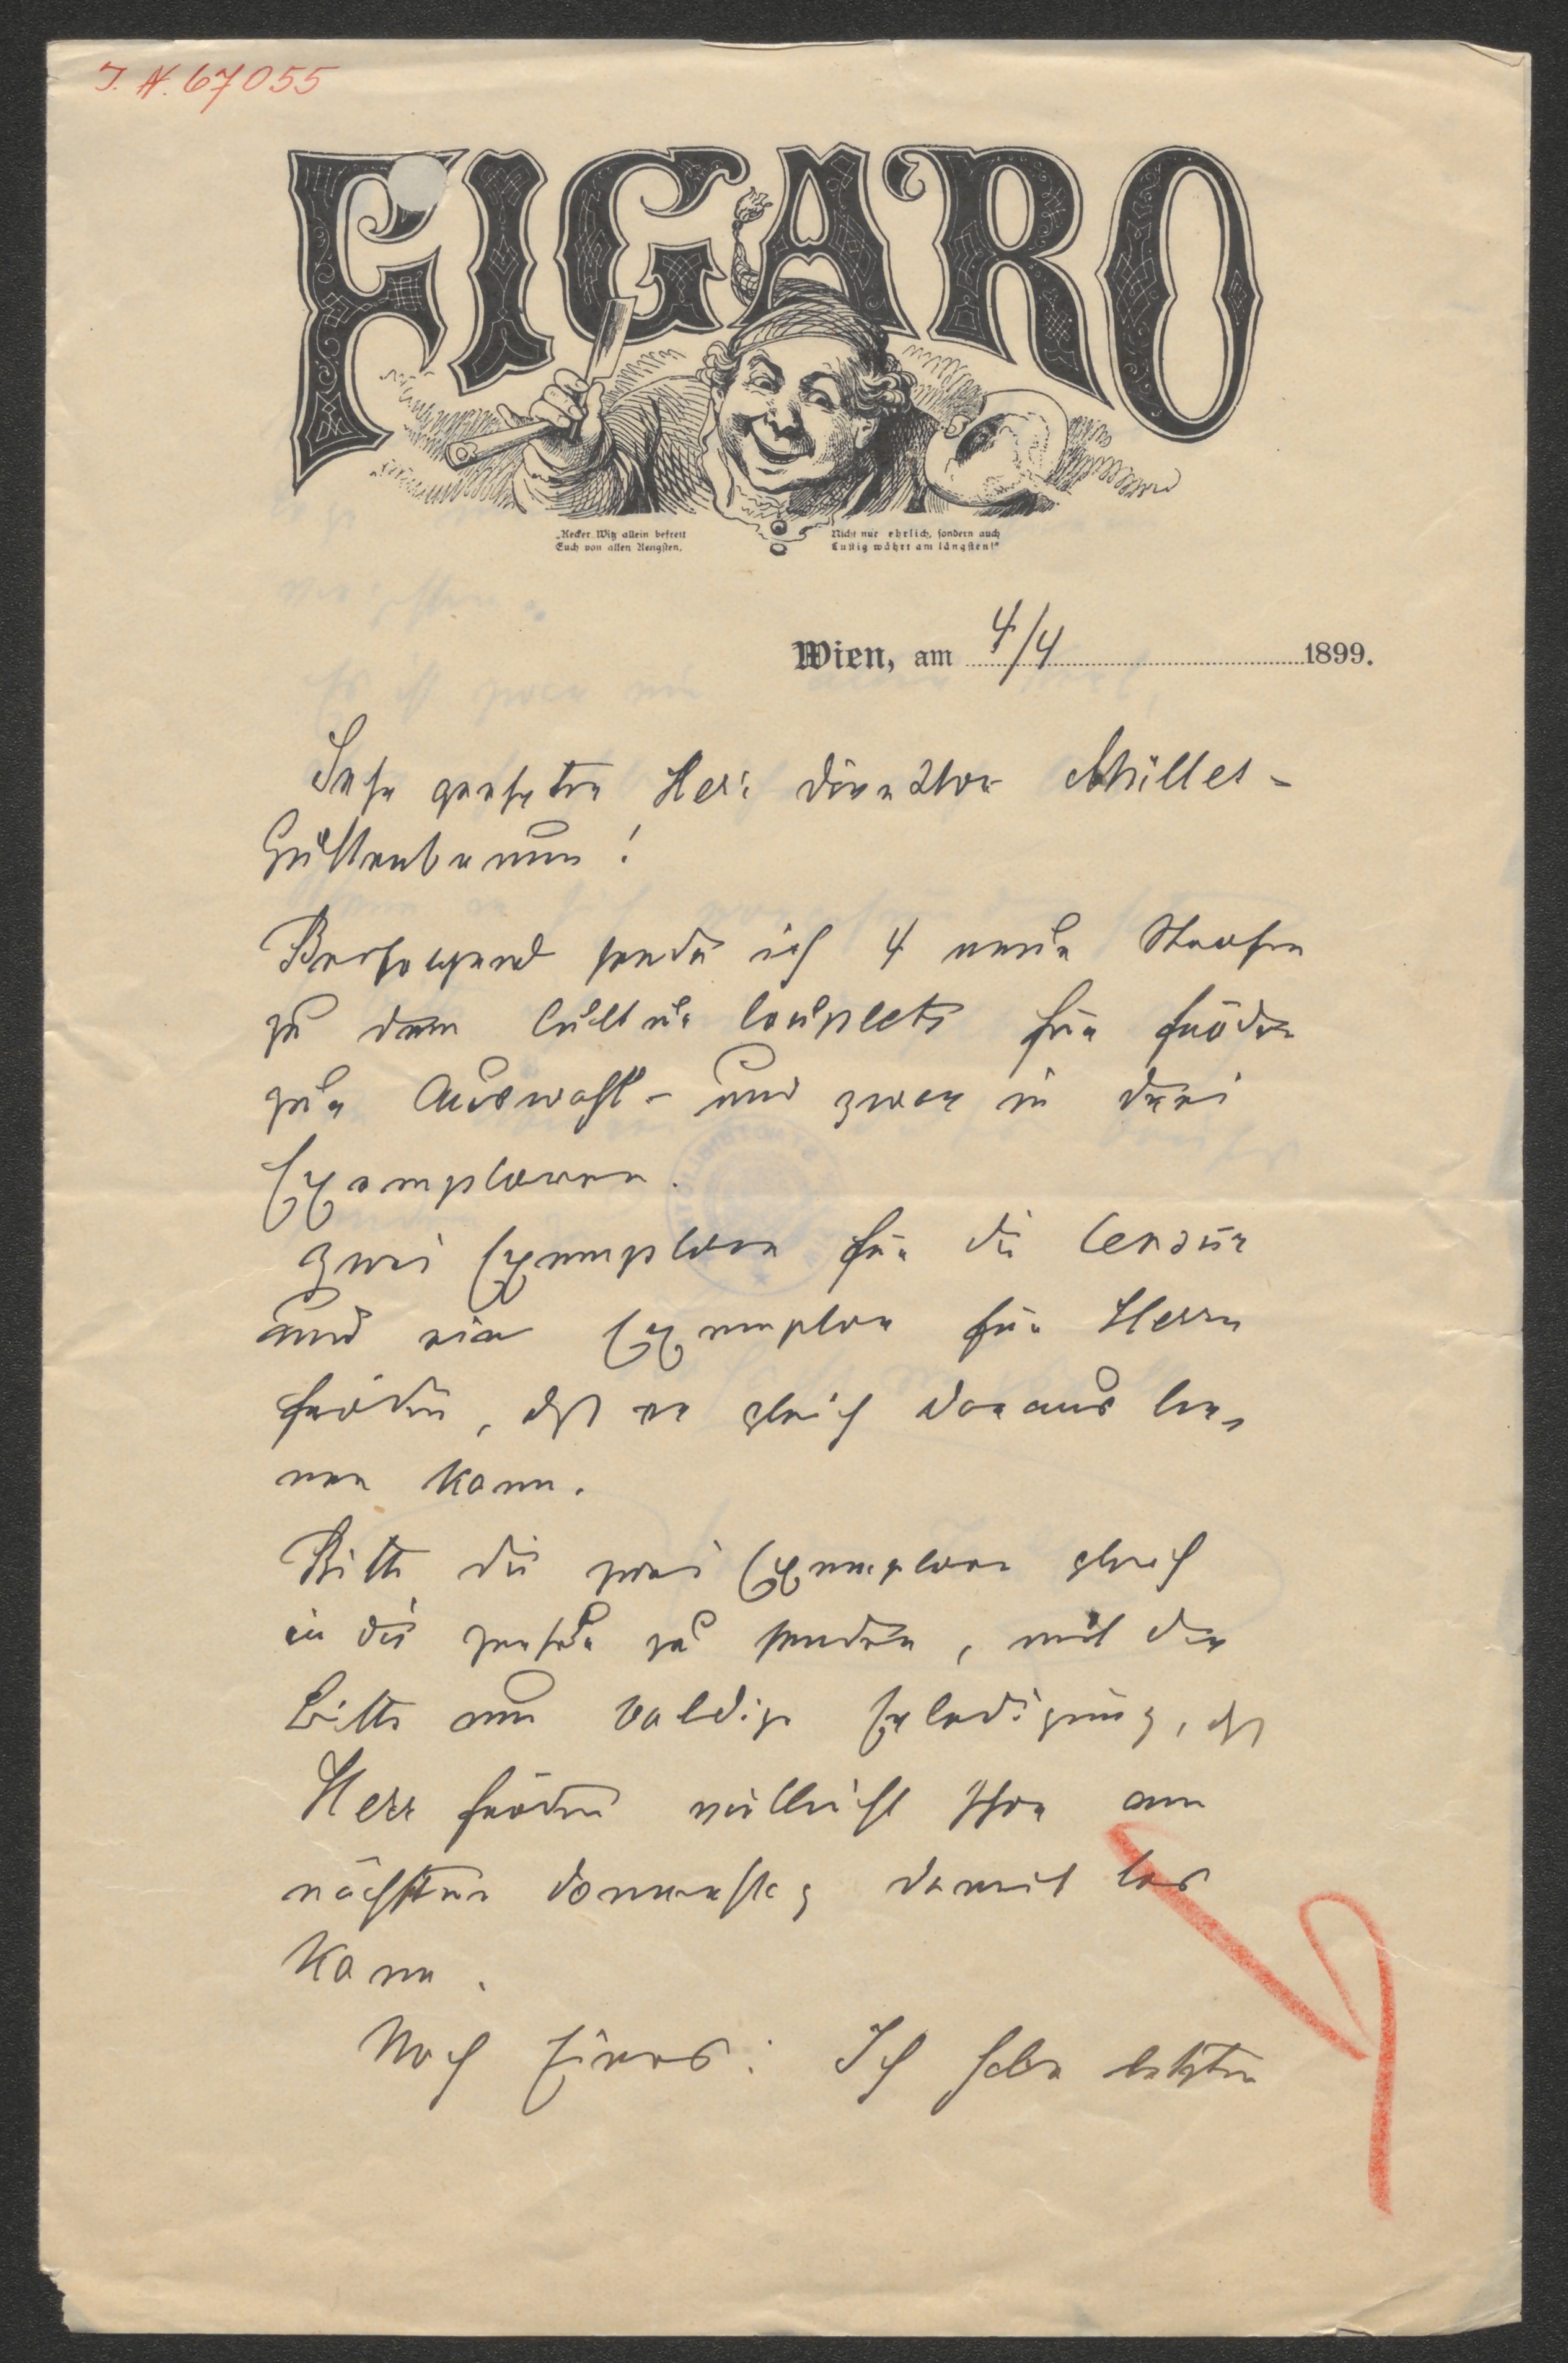 J. N. 67055
FIGARO
„Kecker Witz allein befreit
Euch von allen Aengsten,
Nicht nur ehrlich, sondern auch
Lustig währt am längsten!"
Wien, am 4/4 1899.
Sehr geehrter Herr Direktor Müller-
Guttenbrunn!
Beifolgend sende ich 4 neue Strofen
zu dem Cultur Couplets für Fröden
zur Auswahl – und zwar in drei
Exemplaren.
Zwei Exemplare für die Censur
und ein Exemplar für Herrn
Fröden, dß er gleich daraus ler-
nen kann.
Bitte die zwei Exemplare gleich
in die Censur zu senden, mit der
Bitte um baldige Erledigung, dß
Herr Fröden vielleicht schon am
nächsten Donnerstag damit los
kann.
Noch Eines: Ich habe letzten